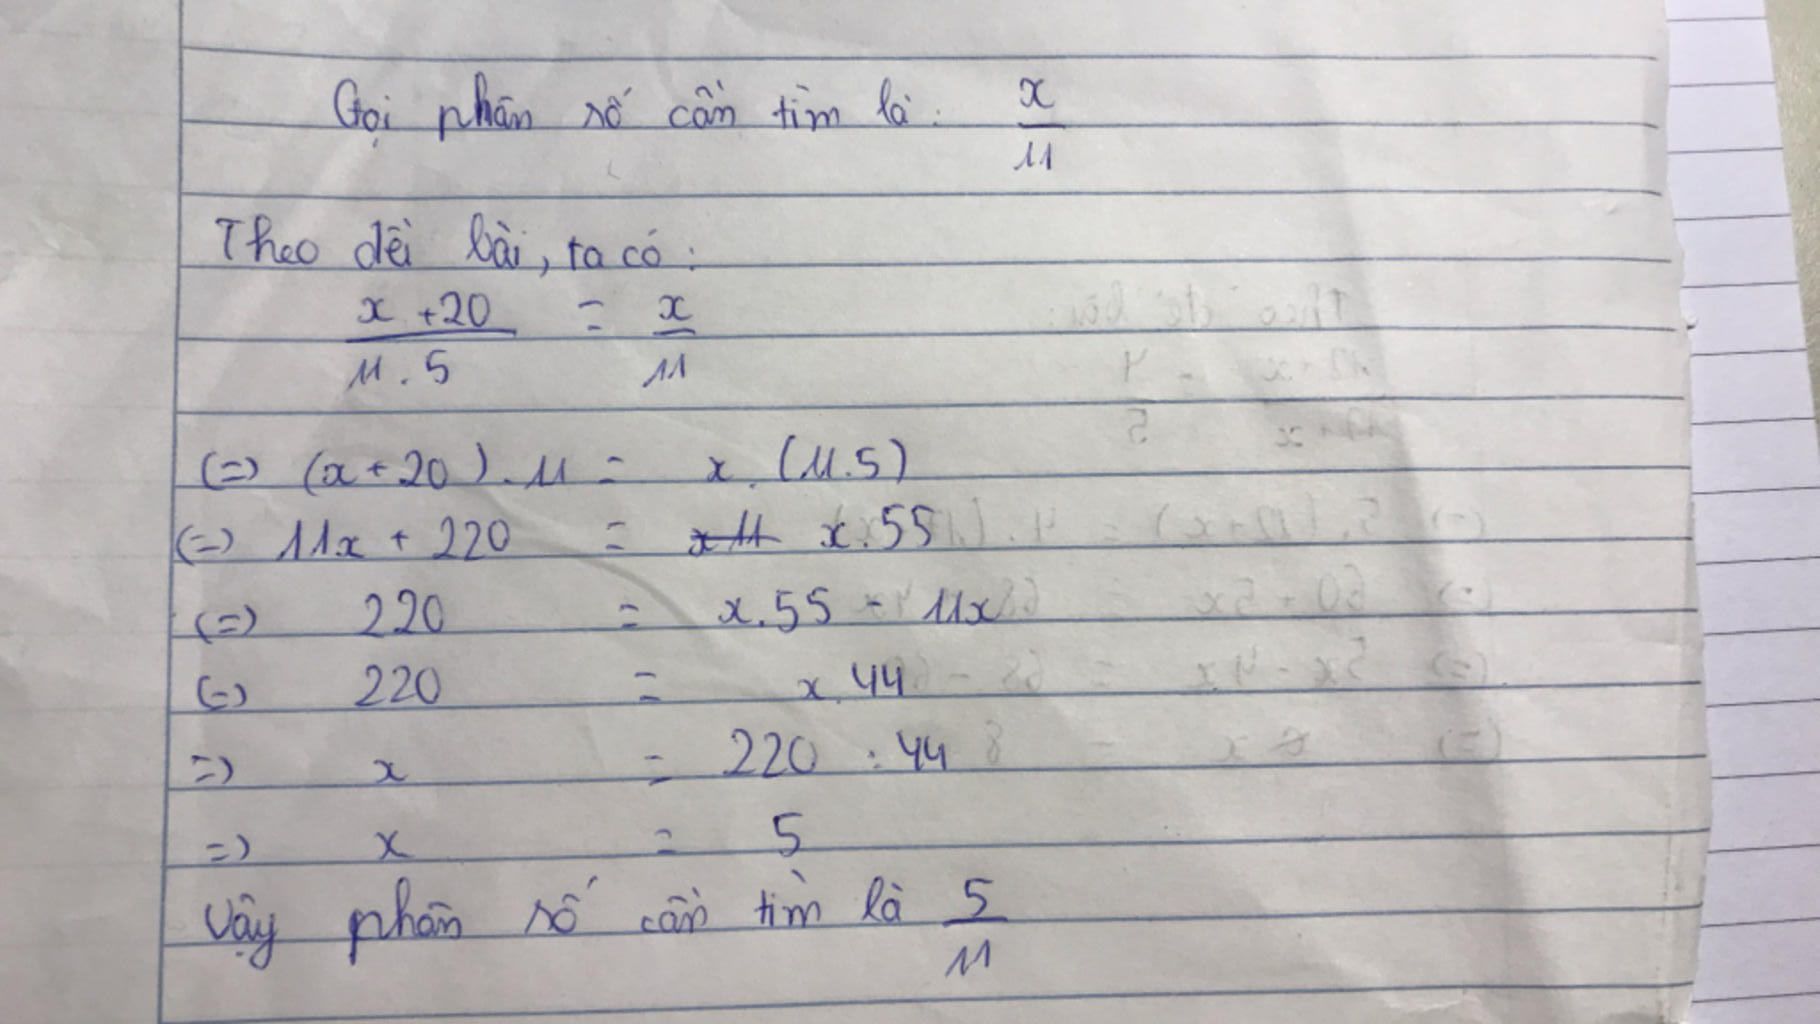 Gọi phân số cần tìm là: x/11
Theo đề bài, ta có:
x+20/11.5 = x/11
(=) (x+20).11 = x.(11.5)
(=) 11x + 220 = x11 x.55
(=) 220 = x.55 - 11x
(=) 220 = x.44
=) x = 220 : 44
=) x = 5
Vậy phân số cần tìm là 5/11